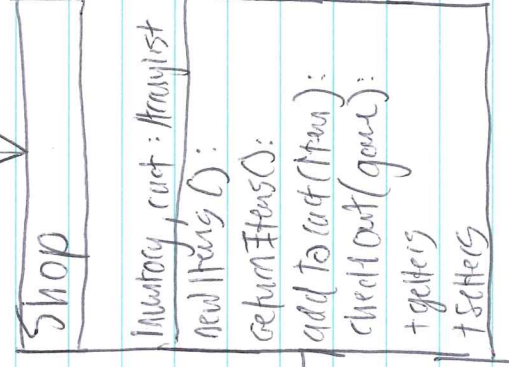 Shop
Inventory, cart : Arraylist
newItems():
returnItems():
addTocart(Item):
checkOut(game):
+getters
+setters